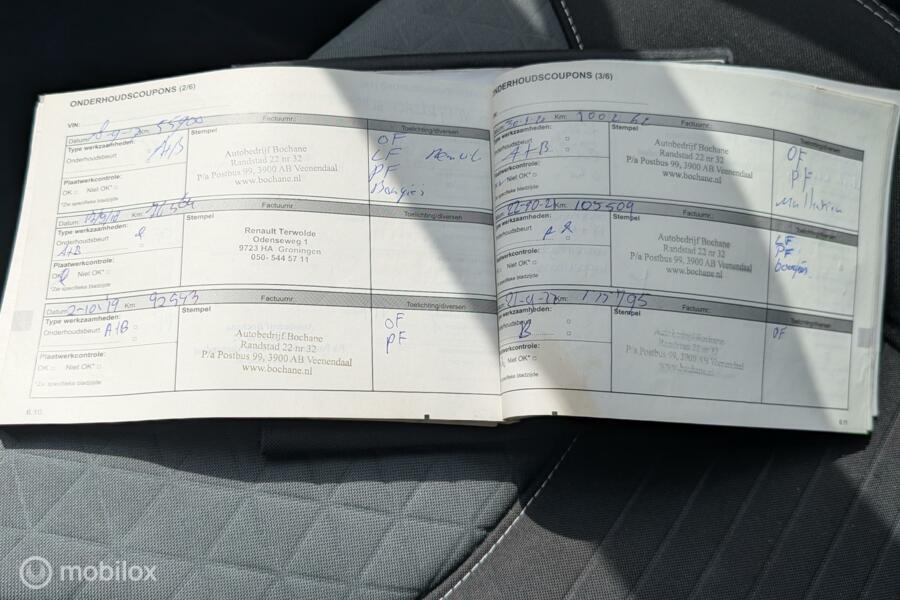 ONDERHOUDSCOUPONS (2/6)
VIN:
Datum: Km: 55400 Factuurnr.:
Type werkzaamheden: A/B
Onderhoudsbeurt
Plaatwerkcontrole:
OK Niet OK*
*Zie specifieke bladzijde
Stempel
Autobedrijf Bochane
Randstad 22 nr 32
P/a Postbus 99, 3900 AB Veenendaal
www.bochane.nl
Toelichting/diversen
OF
LF
PF
Bougies
Datum: Km: Factuurnr.:
Type werkzaamheden:
Onderhoudsbeurt
A+B
Plaatwerkcontrole:
OK Niet OK*
*Zie specifieke bladzijde
Stempel
Renault Terwolde
Odenseweg 1
9723 HA Groningen
050- 544 57 11
Toelichting/diversen
Datum: 2-10-19 Km: 92543 Factuurnr.:
Type werkzaamheden:
Onderhoudsbeurt A+B
Plaatwerkcontrole:
OK Niet OK*
*Zie specifieke bladzijde
Stempel
Autobedrijf Bochane
Randstad 22 nr 32
P/a Postbus 99, 3900 AB Veenendaal
www.bochane.nl
Toelichting/diversen
OF
PF
6.10
ONDERHOUDSCOUPONS (3/6)
Km: Factuurnr.:
Type werkzaamheden:
Onderhoudsbeurt A+B
Plaatwerkcontrole:
Niet OK*
specifieke bladzijde
Stempel
Autobedrijf Bochane
Randstad 22 nr 32
P/a Postbus 99, 3900 AB Veenendaal
www.bochane.nl
Toelichting/diversen
OF
PF
Km: 105509 Factuurnr.:
Type werkzaamheden:
Onderhoudsbeurt
Plaatwerkcontrole:
Niet OK*
specifieke bladzijde
Stempel
Autobedrijf Bochane
Randstad 22 nr 32
P/a Postbus 99, 3900 AB Veenendaal
www.bochane.nl
PF
bougies
Km: Factuurnr.:
Type werkzaamheden:
B
Niet OK*
specifieke bladzijde
Stempel
Autobedrijf Bochane
Randstad 22 nr 32
P/a Postbus 99, 3900 AB Veenendaal
www.bochane.nl
OF
6.11
mobilox